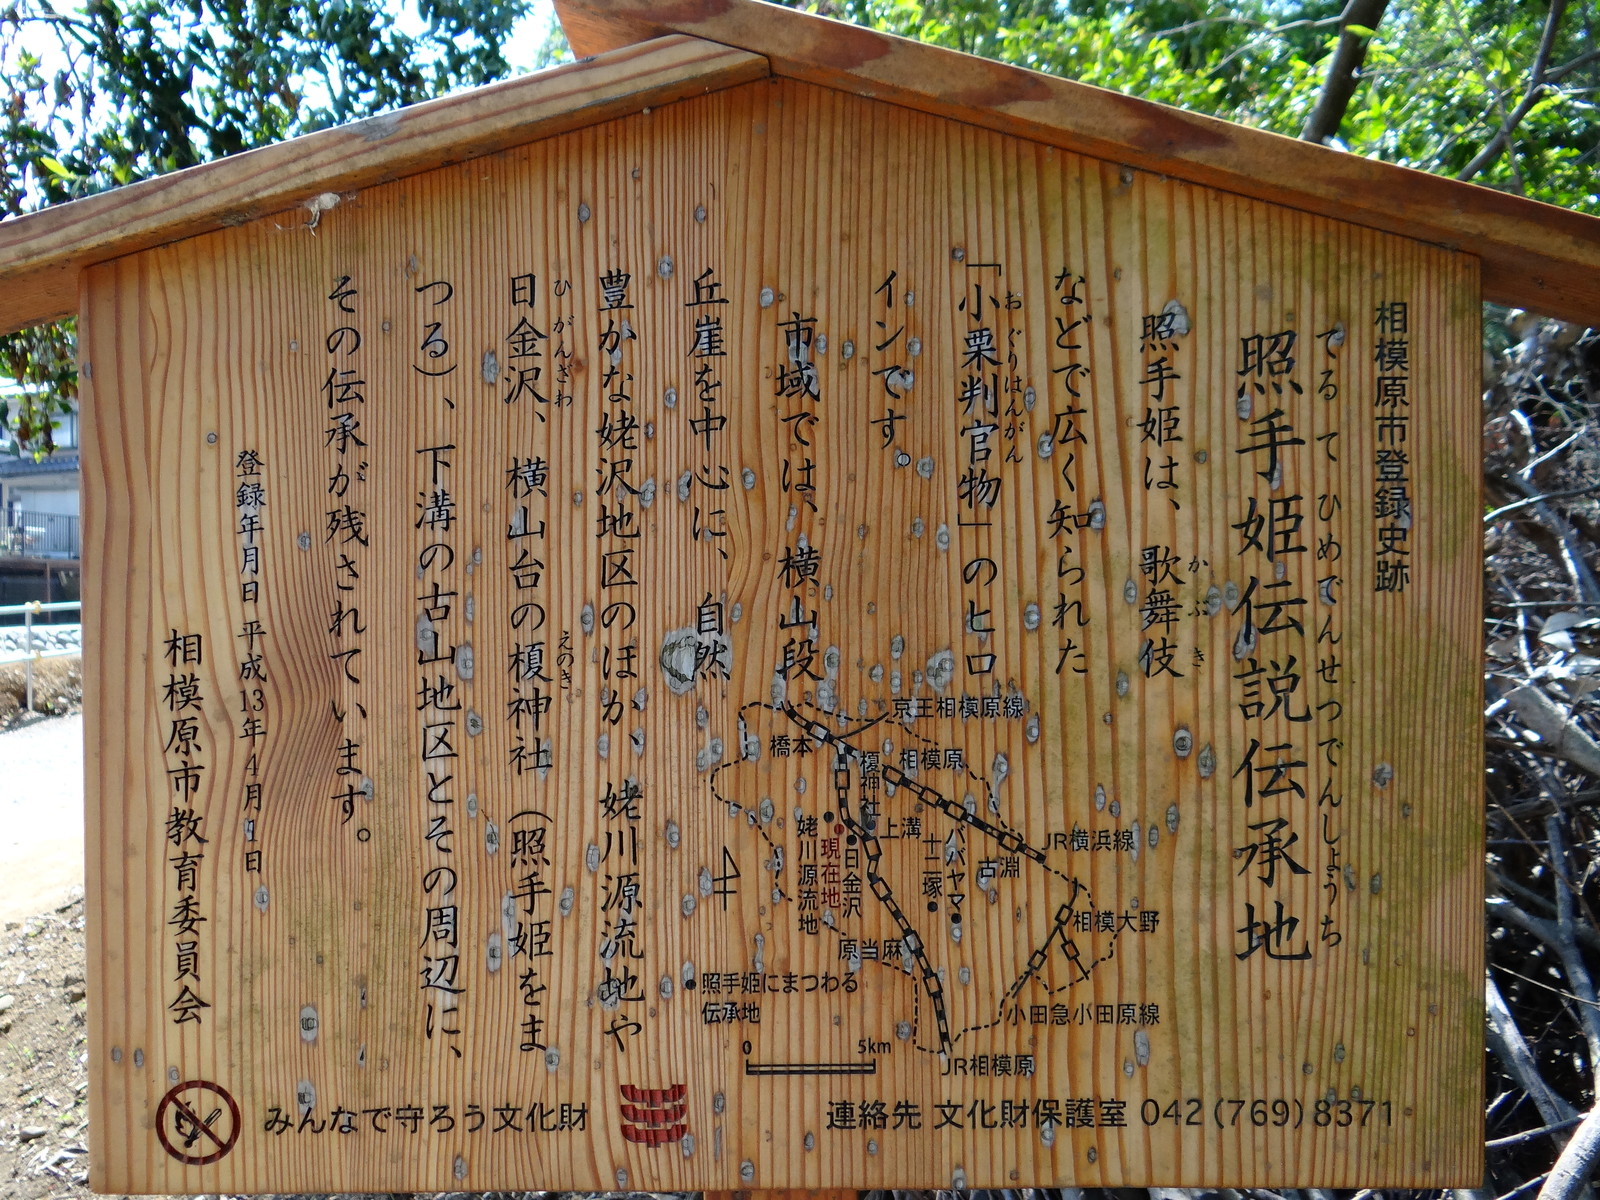 相模原市登録史跡
てるてひめでんせつでんしょうち
照手姫伝説伝承地
照手姫は、歌舞伎
かぶき
などで広く知られた
「小栗判官物」のヒロ
おぐりはんがん
インです。
市域では、横山段
丘崖を中心に、自然
豊かな姥沢地区のほか、姥川源流地や
日金沢、横山台の榎神社(照手姫をま
ひがんざわ
えのき
つる)、下溝の古山地区とその周辺に、
その伝承が残されています。
登録年月日 平成13年4月1日
相模原市教育委員会
京王相模原線
橋本
相模原
榎神社
上溝
JR横浜線
古淵
ババヤマ
十二塚
日金沢
現在地
姥川源流地
相模大野
原当麻
照手姫にまつわる
伝承地
小田急小田原線
0 5km
JR相模原
みんなで守ろう文化財
連絡先 文化財保護室 042(769)8371